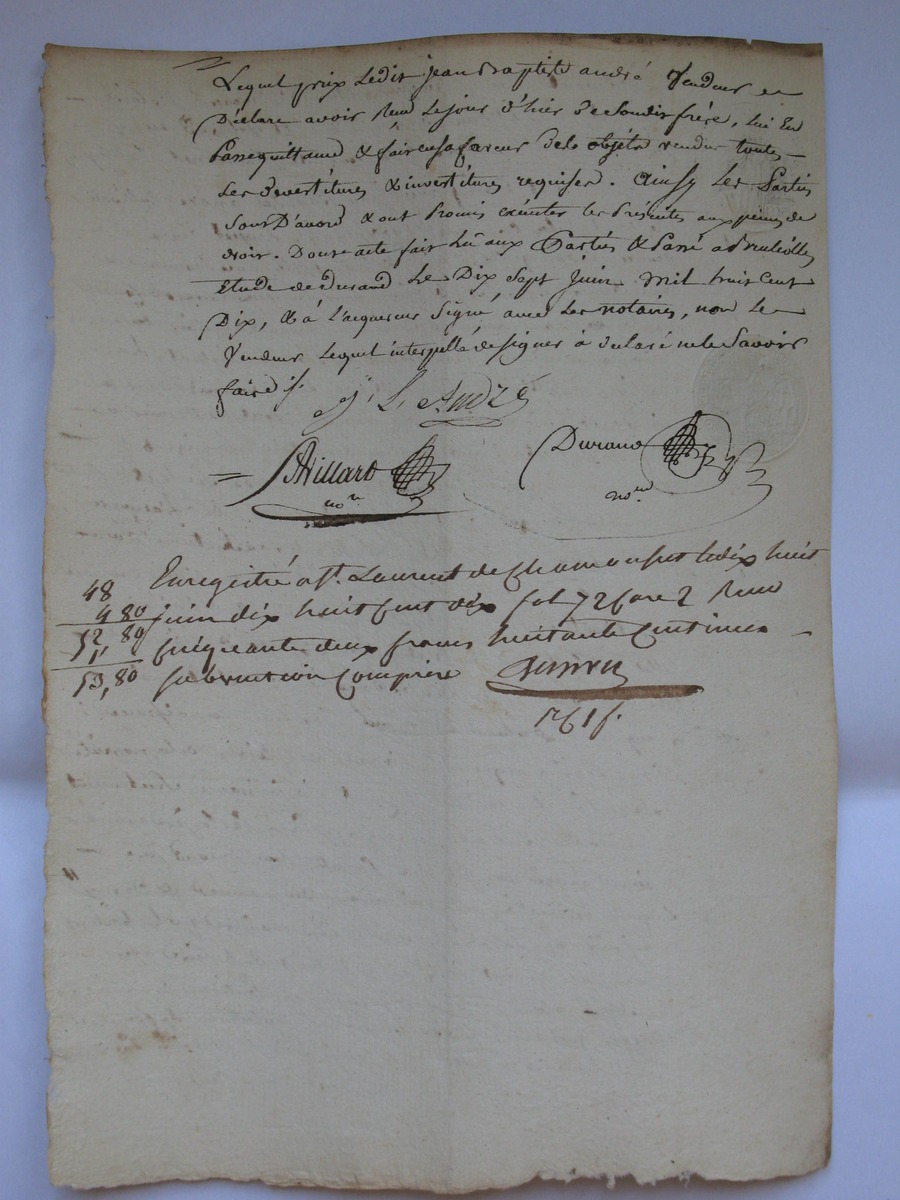 Lequel prix Ledit jean Baptiste andré Vendeur a
Déclaré avoir Reçu Lejour d'hier de sondit frère, lui En
Passe quittance & fait en sa faveur des objets vendus toutes
Les devestitures & investitures requises. Ainsy Les Parties
Sont D'accord & ont Promis exécuter les Présentes aux peines de
droit. Dont acte fait Lû aux Parties & Passé a
Etude de Durand Le Dix Sept juin Mil huit Cent
Dix, & a l'acquereur Signé avec Les notaires, non le
Vendeur Lequel interpellé de signer à déclaré ne le Savoir
faire ./.
J. L. André
= Billard Durand
no.re no.re
48 Enregistré a St. Laurent de Chamousset le dix huit
4 80 juin dix huit Cent dix fol 72 Case 2 Recu
52, 80 cinquante deux francs huitante Centimes
1,
53, 80 subvention Comprise